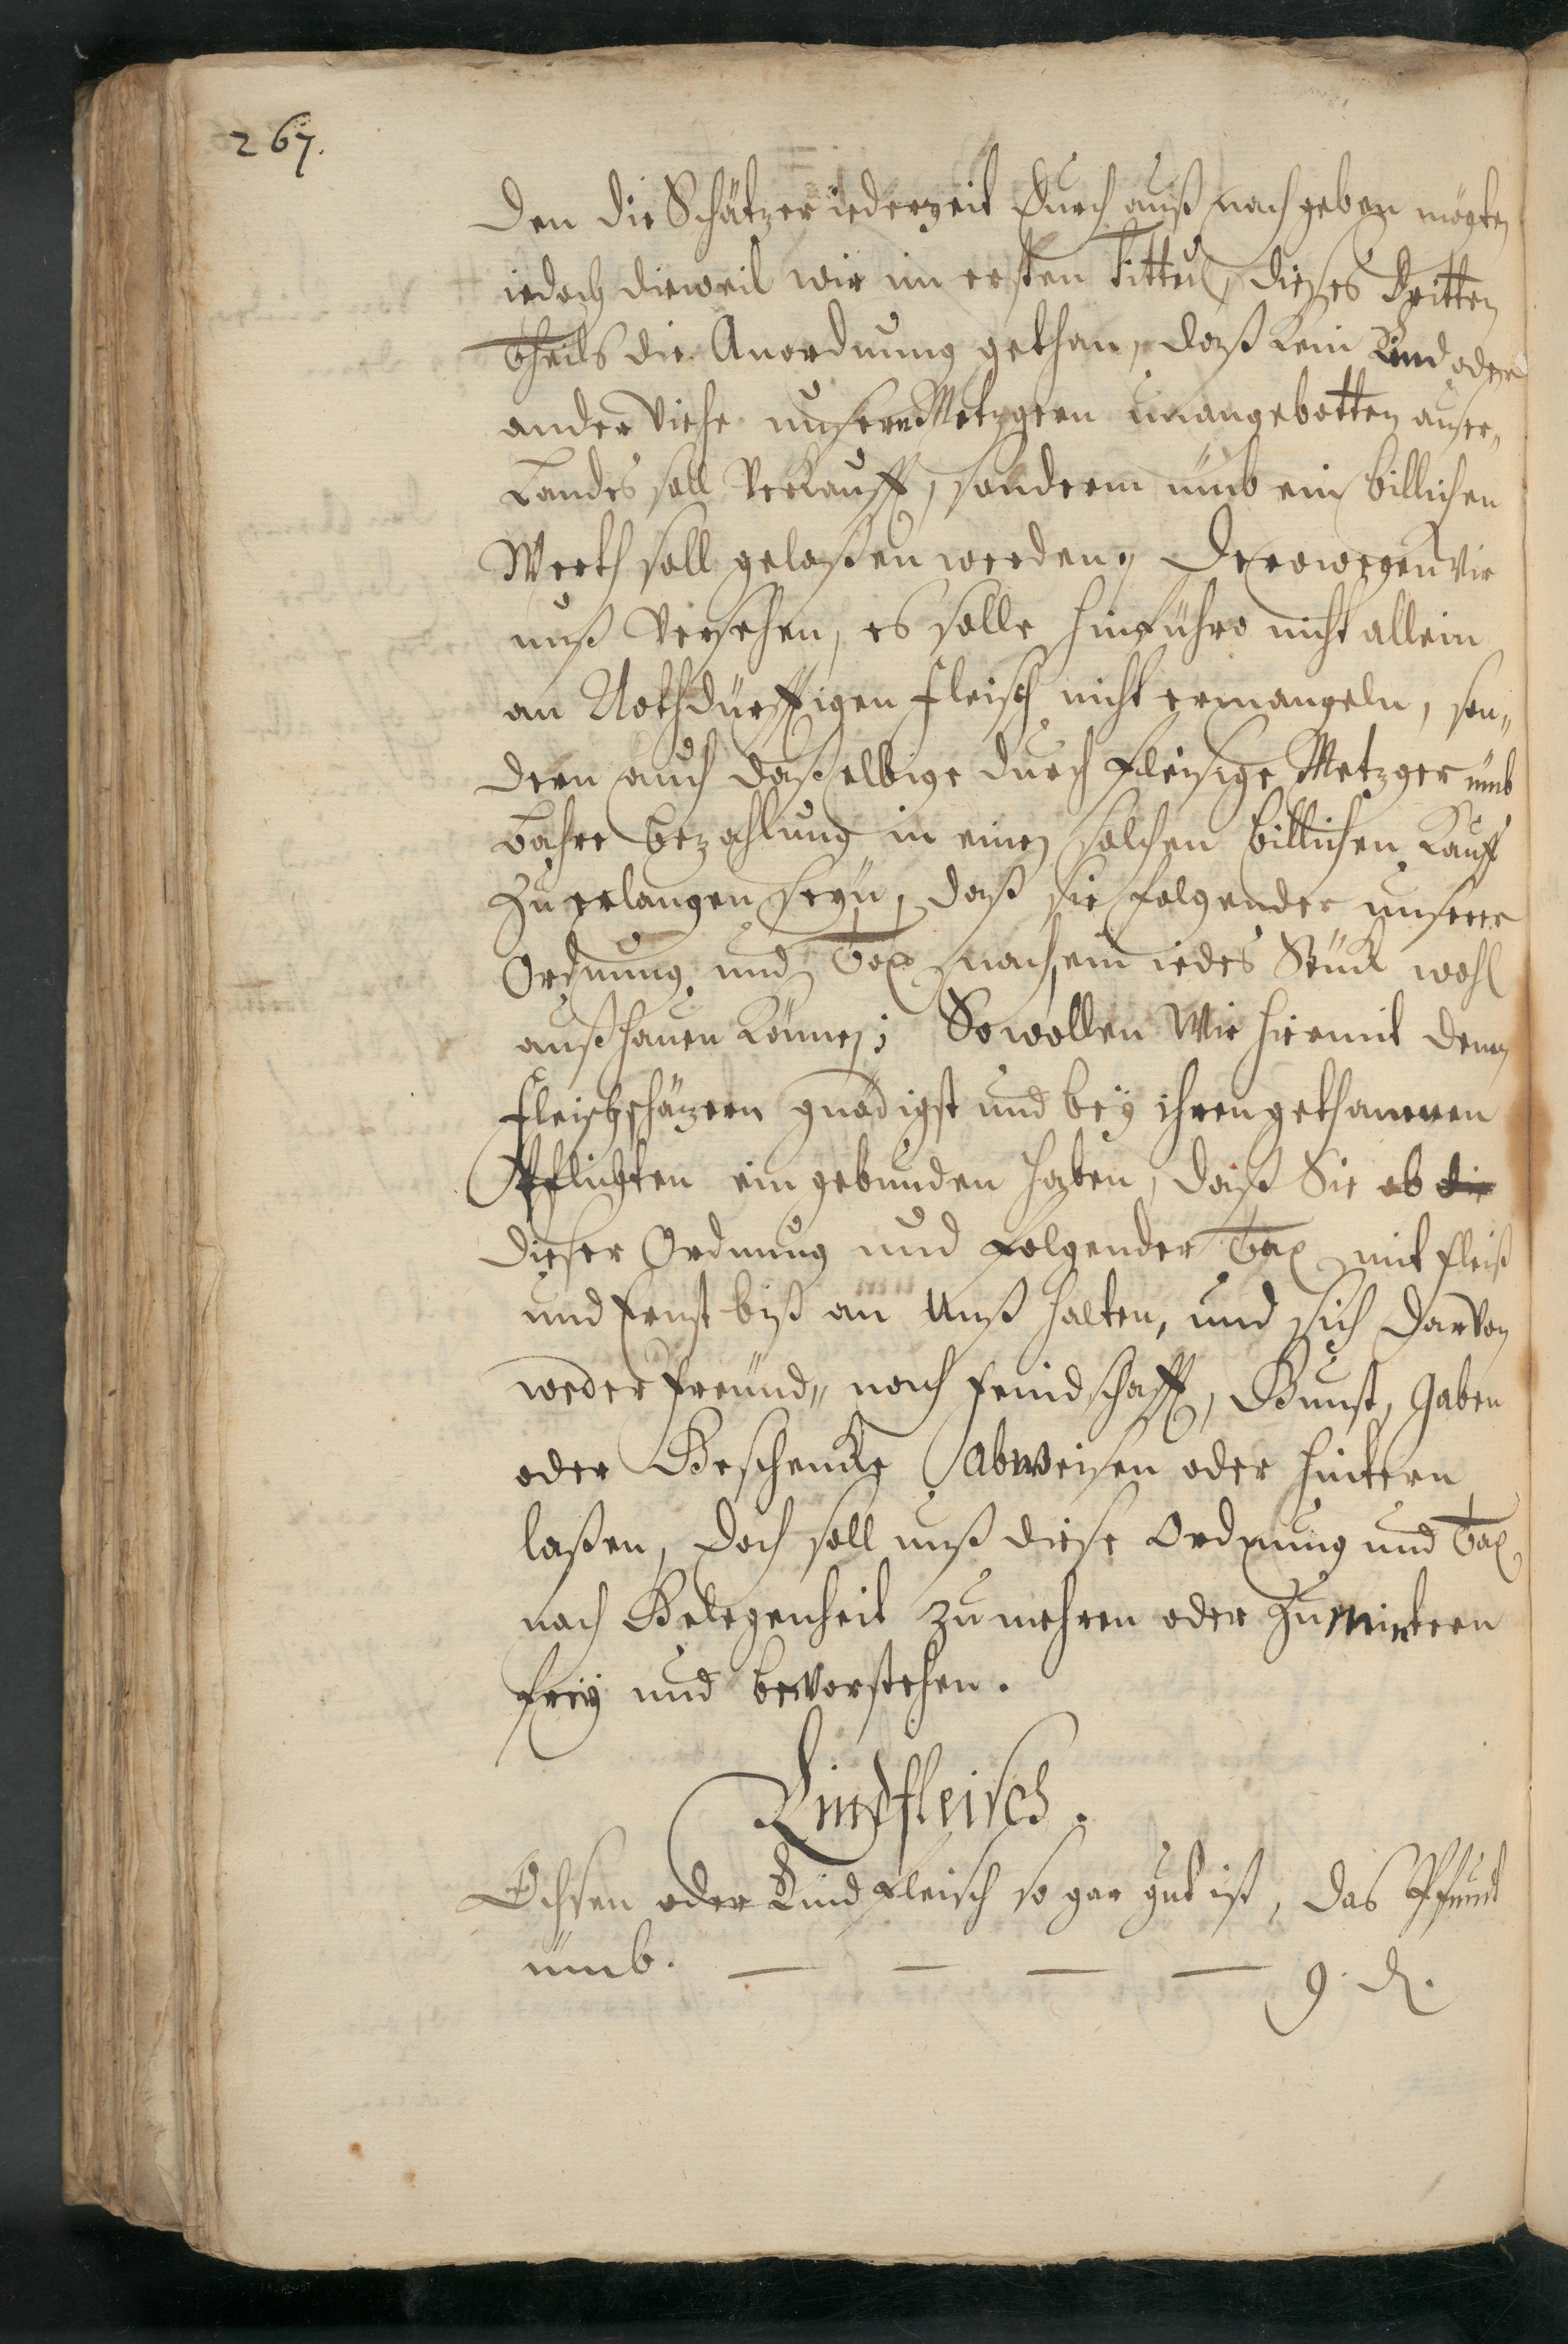 267.
den die Schätzer iederzeit durch auß nach geben mögten
iedoch dieweil wir im ersten Tittul, dießes Dritten
Theils die Anordnung gethan, daß kein Rind oder
ander Viehe unsern Metzgern unangebotten auser„
Landes soll Verkaufft, sonderm umb ein billichen
Werth soll gelaßen werden, Derowegen wir
unß Versehen, es solle hinführo nicht allein
an Nothdürfftigen fleisch nicht ermangeln, son„
dern auch daßelbige durch fleisige Metzger umb
bahre bezahlung in einen solchen billichen Kauff
zu erlangen seyn, daß sie folgender unserer
Ordnung und Tax nach, ein iedes Stück wohl
außhauen können; So wollen Wir hiermit denen
fleischschäzern gnädigst und bey ihren gethannen
Pflichten eingebunden haben, daß Sie ob die
dießer Ordnung und folgender Tax mit fleiß
und Ernst biß an Unß halten, und sich darvon
weder freund„ noch feindschafft, Gunst, Gaben
oder Geschencke abweisen oder hintern
laßen, doch soll unß diese Ordnung und Tax
nach Gelegenheit zu mehren oder zu mintern
frey und bevorstehen.
Rindfleisch.
Ochsen oder Rindfleisch so gar gut ist, das Pfundt
umb. — — — — 9. d.